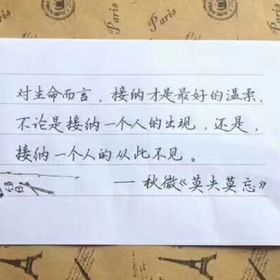 PARIS
对生命而言，接纳才是最好的温柔，
不论是接纳一个人的出现，还是，
接纳一个人的从此不见。
——秋微《莫失莫忘》